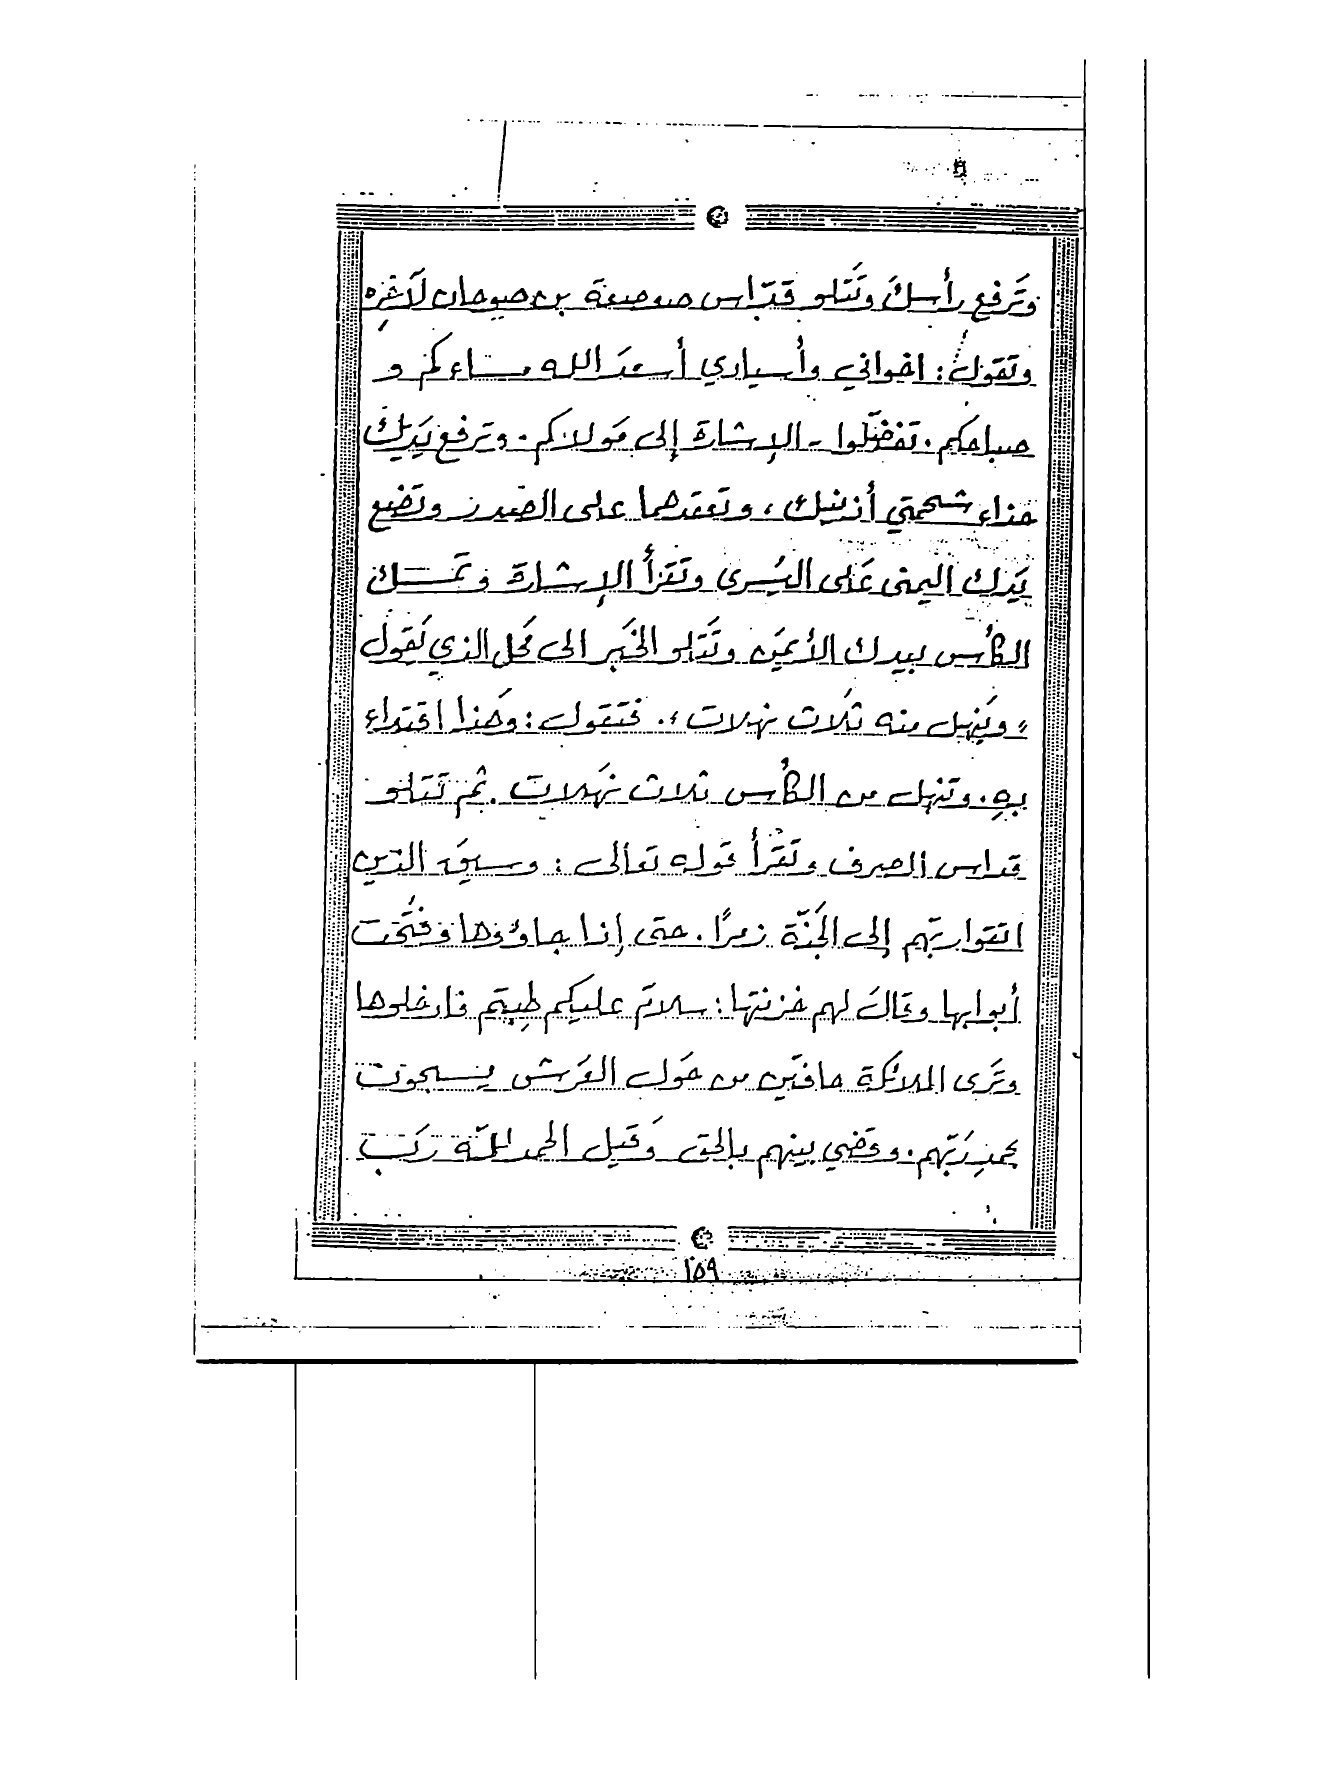 وتَرفع رأسكَ وتَتلو قدّاس صعصعة بن صوحان لآخِره
وتقول: اخواني وأسيادي أسعدَ الله مساءكم و
صباحكم. تفضّلوا - الإشارة إلى مَولاكم. وترفع يَديك
حذاء شحمتي أذنيك، وتعقدهما على الصَدر وتَضع
يَدك اليمنى عَلى اليُسرى وتَقرَأ الإشارة وتمَسك
الكأس بيدك الأيمَن وتَتلو الخَبر الى مَحل الذي يَقول
" ويَنهل منه ثلاث نهلات ". فتَقول: وهَذا اقتداء
بهِ. وتنهل من الكأس ثلاث نهَلات. ثم تَتلو
قداس الصرف وتَقرَأ قوله تعالى: وسيقَ الذين
اتقوا ربّهم إلى الجَنّة زمرًا. حتى إذا جاؤوها وفُتّحَت
أبوابها وقالَ لهم خزنتها: سلامٌ عليكم طِبتم فادخلوها
وتَرى الملائكة حافّين من حَول العَرش يسبحون
بحمدِ رَبّهم. وقضَي بينهم بالحق وَقيل الحمد للّه رَبّ
١٥٩